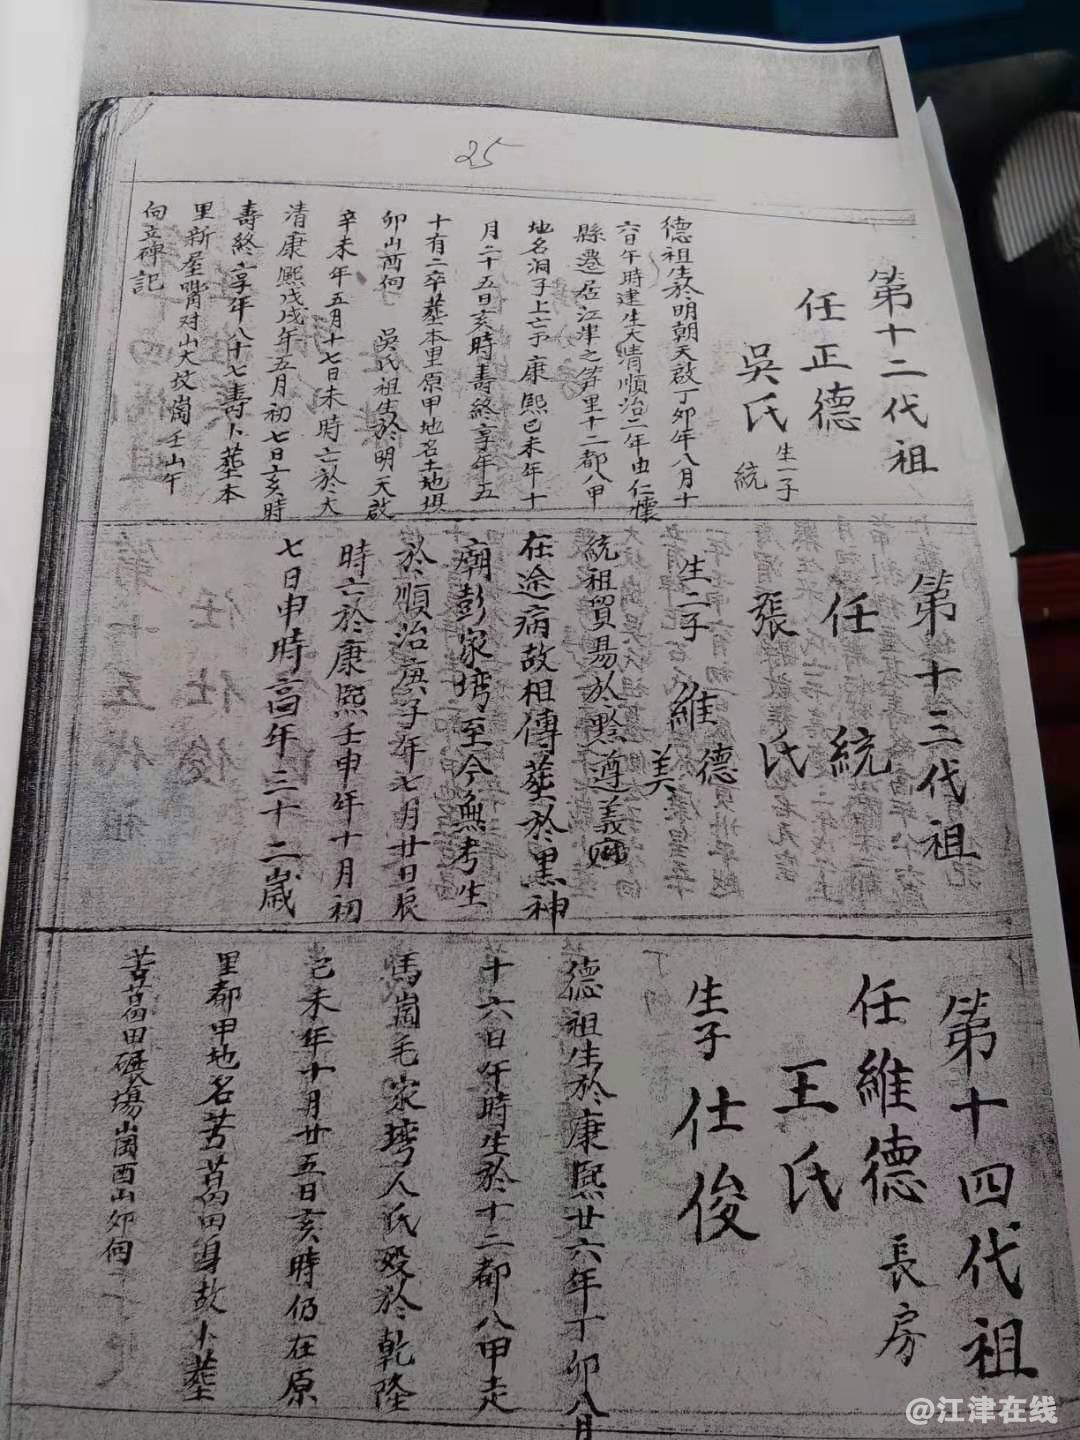 25
第十二代祖
任正德
吳氏
生一子
統
德祖生於明朝天啟丁卯年八月十
六日午時建生大清順治二年由仁懷
縣遷居江津之笋里十二都八甲
地名洞子上亡于康熙己未年十
月二十五日亥時壽終享年五
十有二卒葬本里原甲地名土地垻
卯山酉向 吳氏祖生於明天啟
辛未年五月十七日未時亡於大
清康熙戊戌年五月初七日亥時
壽終享年八十七壽卜葬本
里新屋嘴对山大坟崗壬山午
向立碑記
第十三代祖
任統
張氏
生二子 維德
美
統祖貿易於黔遵義
在途病故相傳葬於黑神
廟彭家塆至今無考生
於順治庚子年七月廿日辰
時亡於康熙壬申年十月初
七日申時高年三十二歲
第十四代祖
任維德長房
王氏
生子仕俊
德祖生於康熙廿六年丁卯八月
十六日午時生於十二都八甲走
馬崗毛家塆人氏歿於乾隆
己未年十月廿五日亥時仍在原
里都甲地名苦菖田身故卜葬
苦菖田碾塲崗酉山卯向
@江津在线